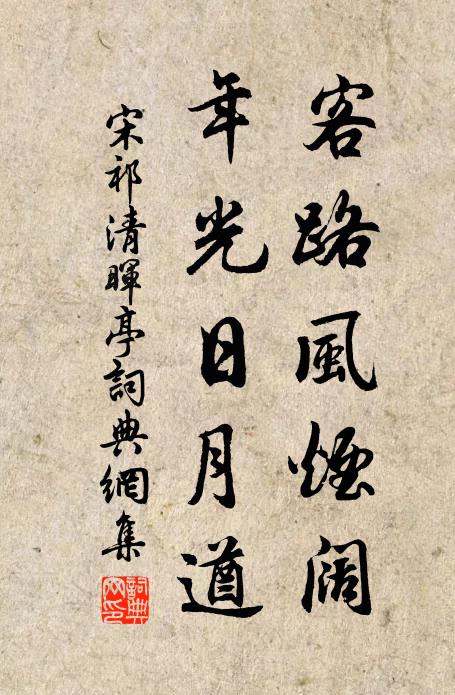 客路風煙闊
年光日月遒
宋祁清暉亭詞典網集
詞典網印